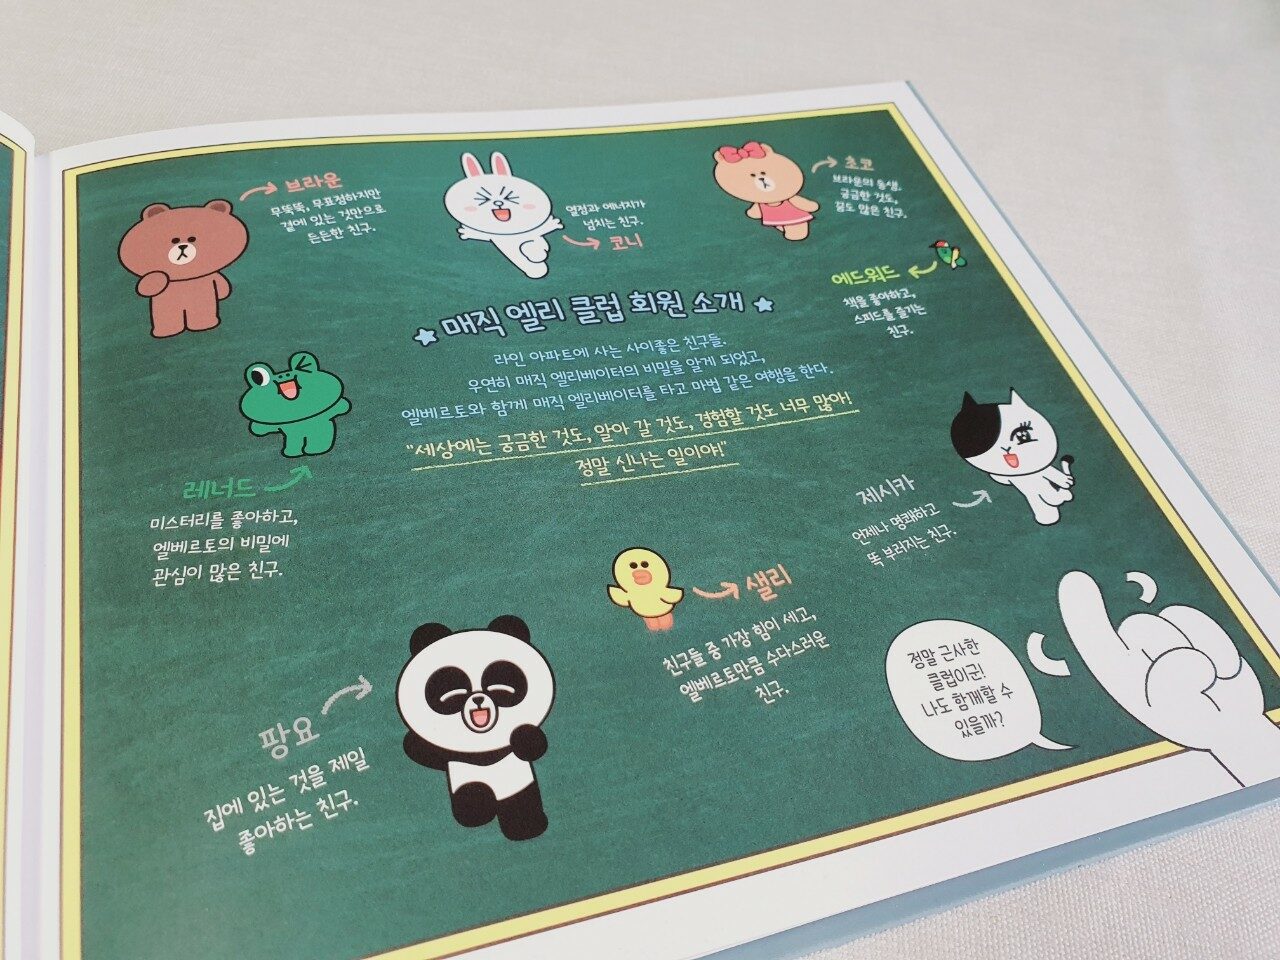 브라운
무뚝뚝, 무표정하지만
곁에 있는 것만으로
든든한 친구.
열정과 에너지가
넘치는 친구.
코니
초코
브라운의 동생.
궁금한 것도,
꿈도 많은 친구.
에드워드
책을 좋아하고,
스피드를 즐기는
친구.
매직 엘리 클럽 회원 소개
라인 아파트에 사는 사이좋은 친구들.
우연히 매직 엘리베이터의 비밀을 알게 되었고,
엘베르토와 함께 매직 엘리베이터를 타고 마법 같은 여행을 한다.
"세상에는 궁금한 것도, 알아 갈 것도, 경험할 것도 너무 많아!
정말 신나는 일이야!"
레너드
미스터리를 좋아하고,
엘베르토의 비밀에
관심이 많은 친구.
제시카
언제나 명쾌하고
똑 부러지는 친구.
샐리
친구들 중 가장 힘이 세고,
엘베르토만큼 수다스러운
친구.
팡요
집에 있는 것을 제일
좋아하는 친구.
정말 근사한
클럽이군!
나도 함께할 수
있을까?